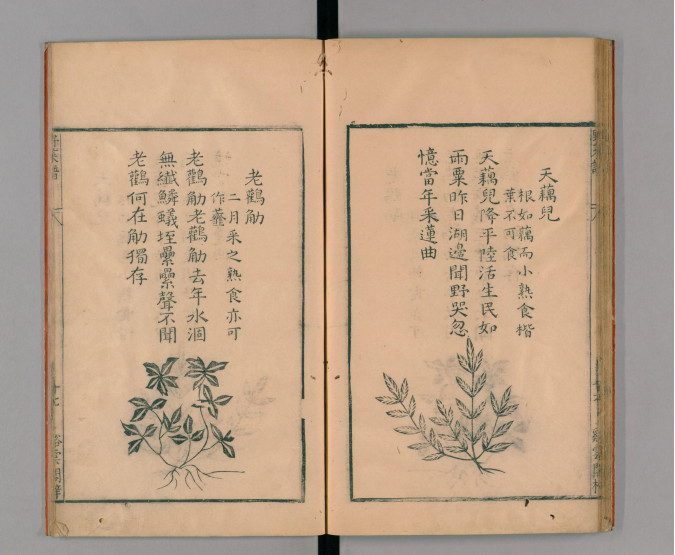 天藕兒
根如藕而小熟食楷
葉不可食
天藕兒降平陸活生民如
雨粟昨日湖邊聞野哭忽
憶當年采蓮曲
老鸛觔
二月采之熟食亦可
作虀
老鸛觔老鸛觔去年水涸
無纖鱗蟻垤纍纍聲不聞
老鸛何在觔獨存